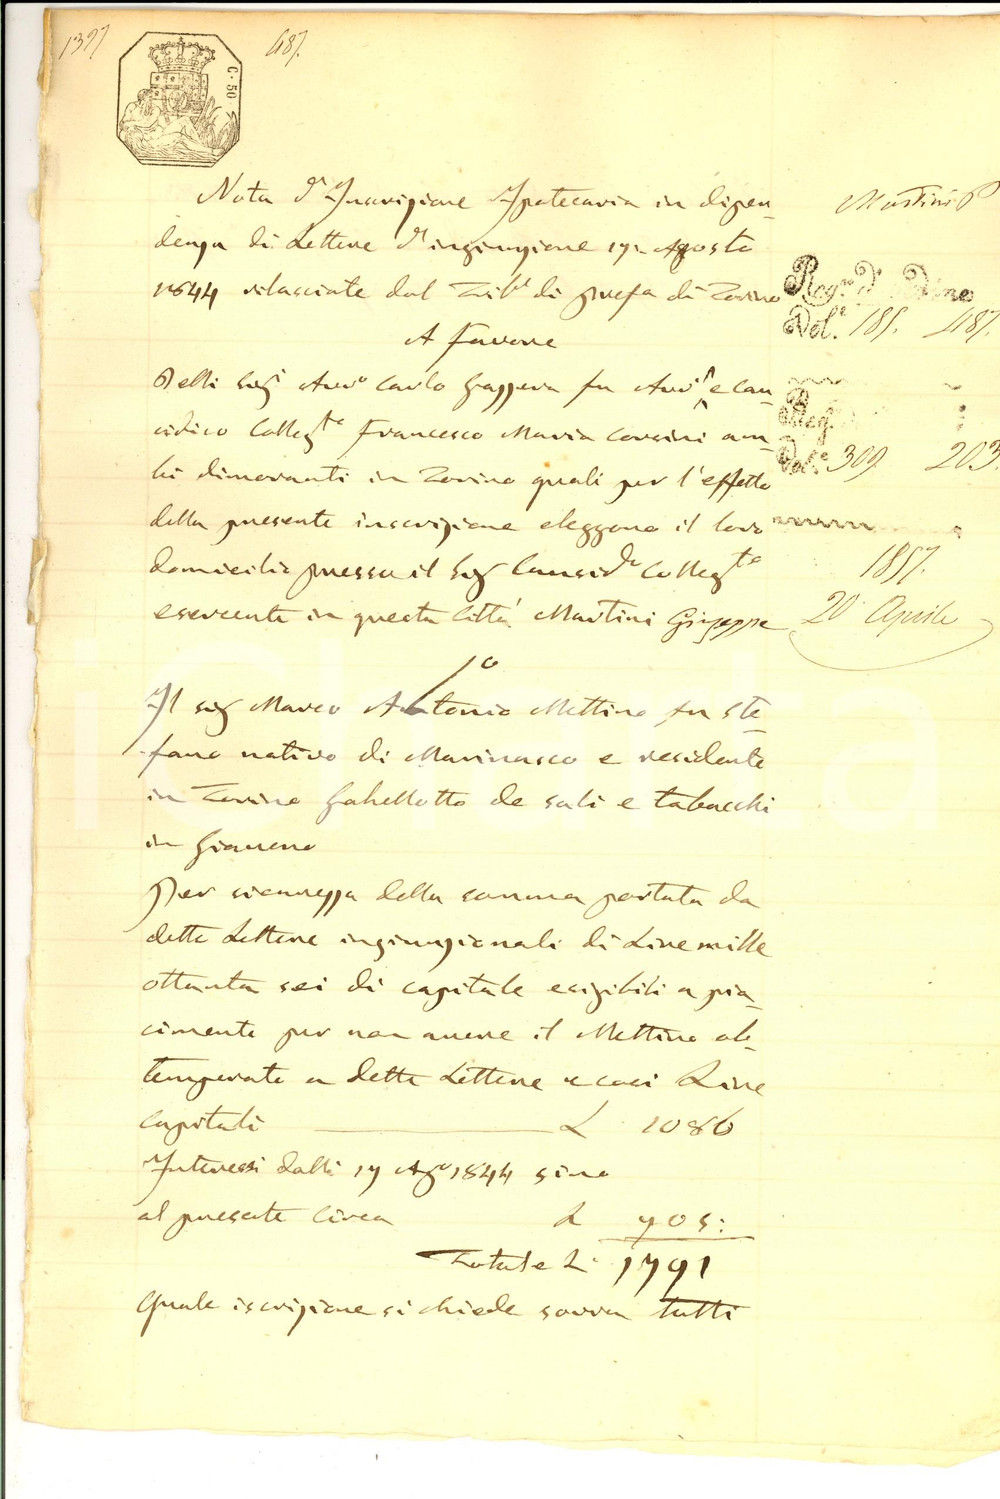 1397 487.
C. 50
Nota d'Inscrizione Ipotecaria in dipen-
denza di Lettere d'ingiunzione 17 Agosto
1844 rilasciate dal Trib.e di prefa di Torino
A favore
Delli Sig.i Avv.o Carlo Grappera fu Avv.o e Cau-
sidico Colleg.to Francesco Maria Corsini am-
bi dimoranti in Torino quali per l'effetto
della presente inscrizione eleggono il loro
domicilio presso il Sig Causid.o Colleg.to
esercente in questa Città Martini Giuseppe
Martini P
Reg.o d'
Vol.e 185. 487.
Reg.
Vol.e 309 203
1857.
20 Aprile
1°
Il sig Marco Antonio Mettino fu Ste-
fano nativo di Marinasco e residente
in Torino Gabellotto de sali e tabacchi
in Giaveno
Per sicurezza della somma portata da
dette Lettere ingiunzionali di Lire mille
ottanta sei di capitale esigibili a pia-
cimento per non avere il Mettino ob-
temperato a dette Lettere e così Lire
Capitali L 1086
Interessi dalli 17 Ag.o 1844 sino
al presente circa L 705:
Totale L. 1791
Quale iscrizione si chiede sovra tutti